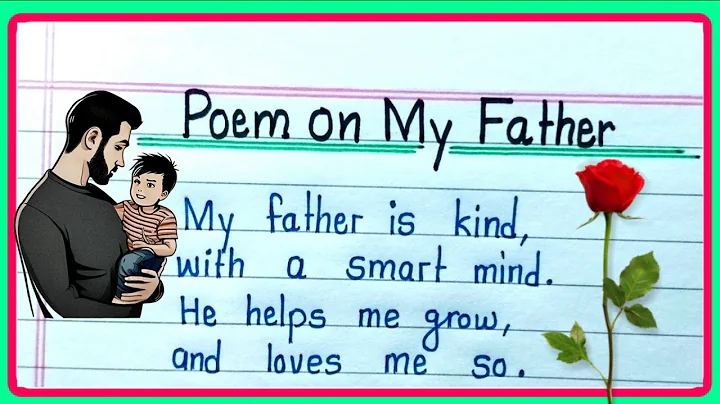 Poem on My Father
My father is kind,
with a smart mind.
He helps me grow,
and loves me so.